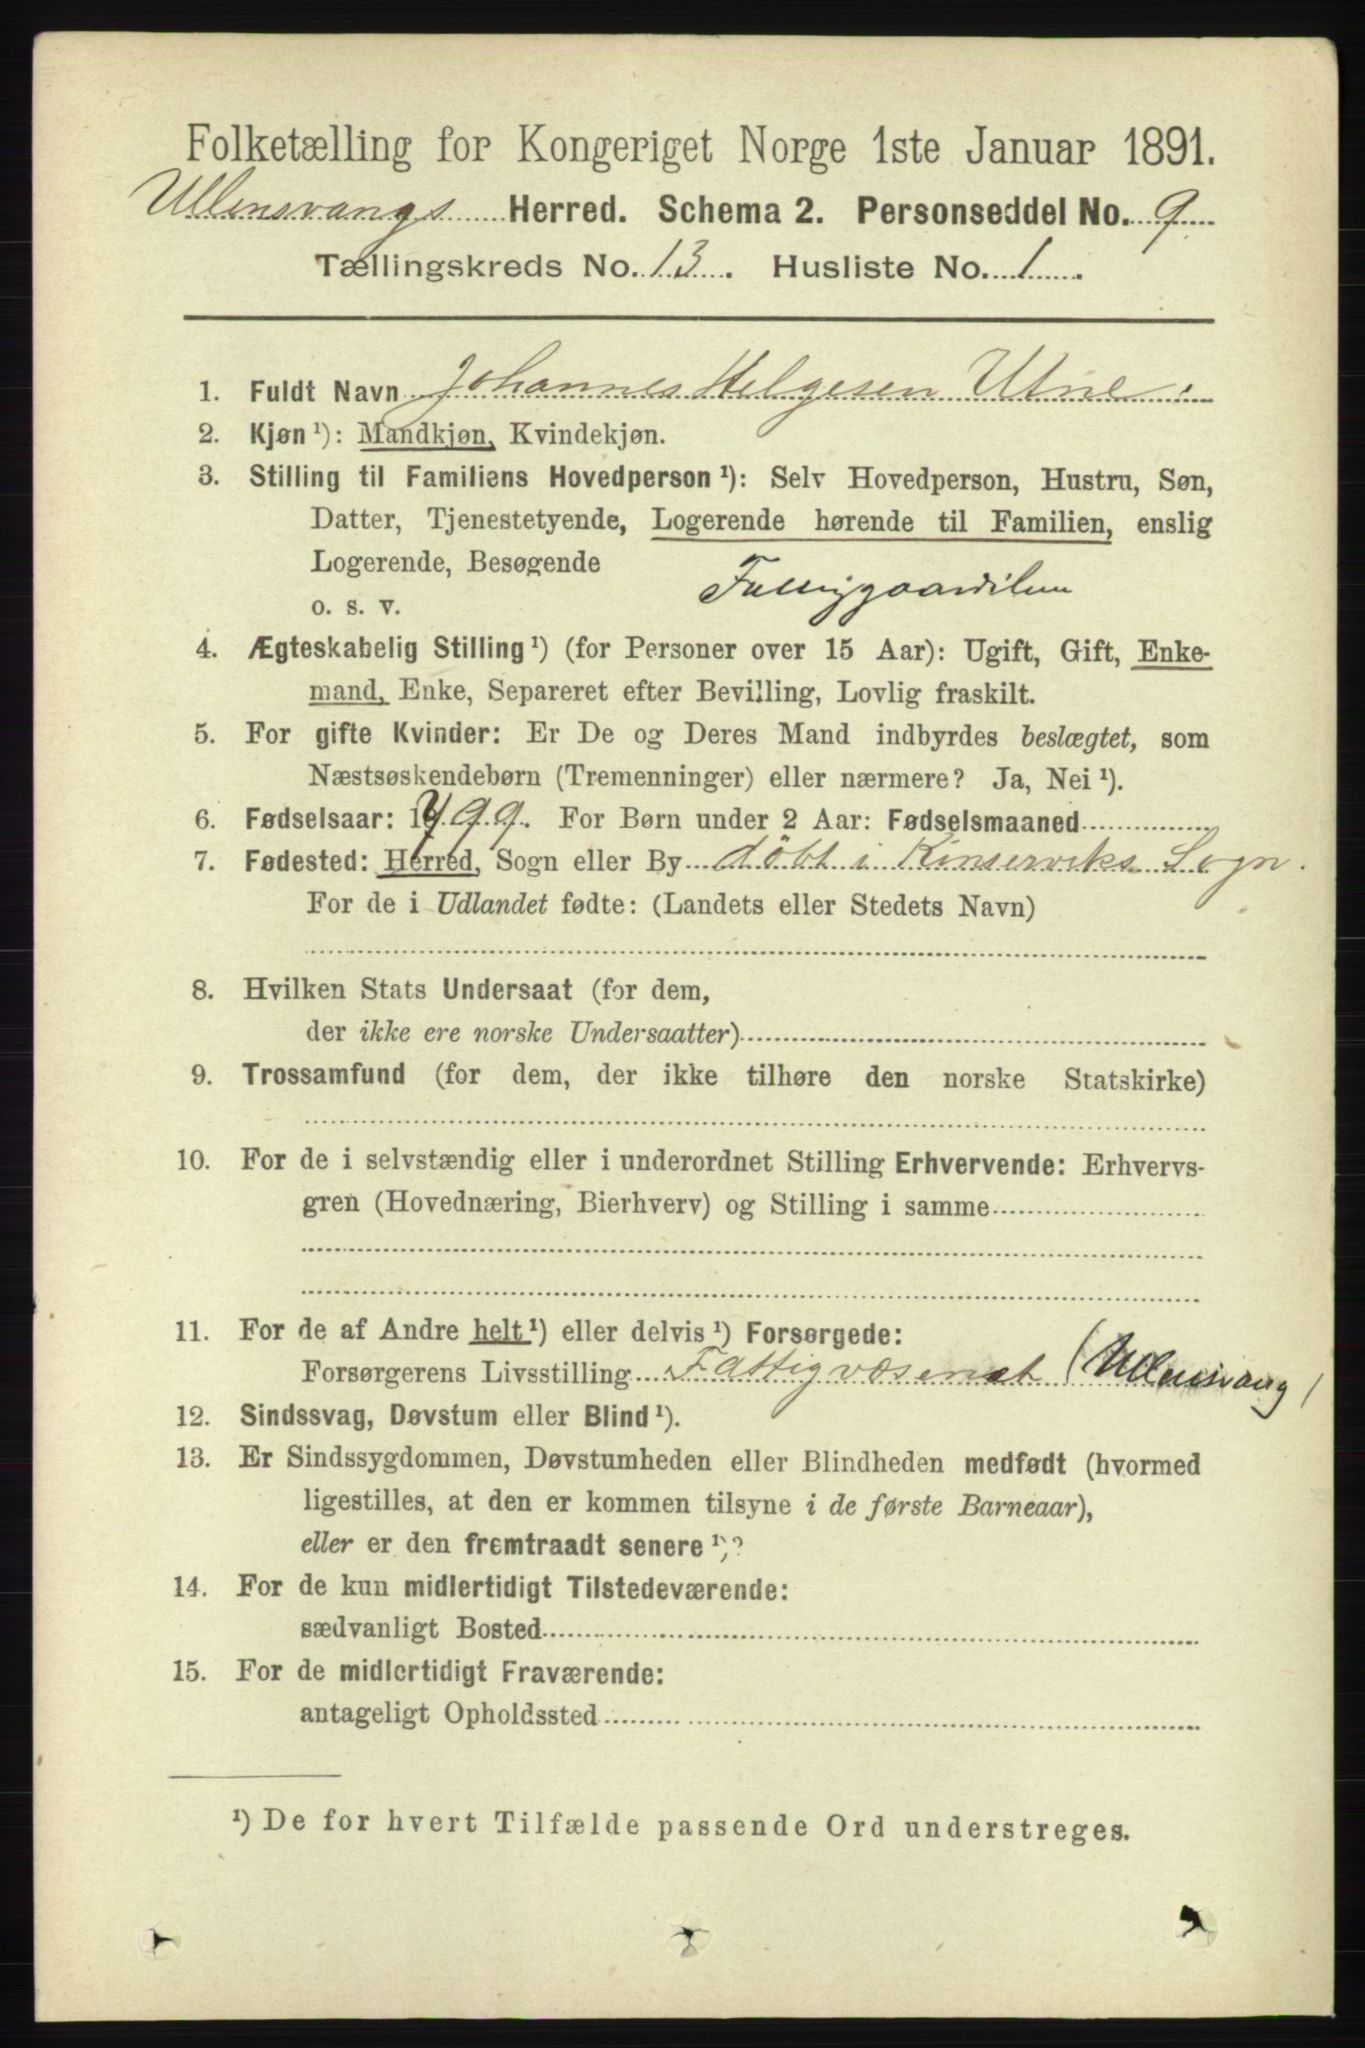 Folketælling for Kongeriget Norge 1ste Januar 1891.
Ullensvangs Herred. Schema 2. Personseddel No. 9
Tællingskreds No. 13. Husliste No. 1.
1. Fuldt Navn Johannes Helgesen Utne.
2. Kjøn¹): Mandkjøn, Kvindekjøn.
3. Stilling til Familiens Hovedperson¹): Selv Hovedperson, Hustru, Søn,
Datter, Tjenestetyende, Logerende hørende til Familien, enslig
Logerende, Besøgende
o. s. v.
4. Ægteskabelig Stilling¹) (for Personer over 15 Aar): Ugift, Gift, Enke-
mand, Enke, Separeret efter Bevilling, Lovlig fraskilt.
5. For gifte Kvinder: Er De og Deres Mand indbyrdes beslægtet, som
Næstsøskendebørn (Tremenninger) eller nærmere? Ja, Nei¹).
6. Fødselsaar: 1799. For Børn under 2 Aar: Fødselsmaaned
7. Fødested: Herred, Sogn eller By döbt i Kinserviks Sogn.
For de i Udlandet fødte: (Landets eller Stedets Navn)
8. Hvilken Stats Undersaat (for dem,
der ikke ere norske Undersaatter)
9. Trossamfund (for dem, der ikke tilhøre den norske Statskirke)
10. For de i selvstændig eller i underordnet Stilling Erhvervende: Erhvervs-
gren (Hovednæring, Bierhverv) og Stilling i samme
11. For de af Andre helt¹) eller delvis¹) Forsørgede:
Forsørgerens Livsstilling Fattigvæsenet (Ullensvang)
12. Sindssvag, Døvstum eller Blind¹).
13. Er Sindssygdommen, Døvstumheden eller Blindheden medfødt (hvormed
ligestilles, at den er kommen tilsyne i de første Barneaar),
eller er den fremtraadt senere¹)?
14. For de kun midlertidigt Tilstedeværende:
sædvanligt Bosted
15. For de midlertidigt Fraværende:
antageligt Opholdssted
¹) De for hvert Tilfælde passende Ord understreges.